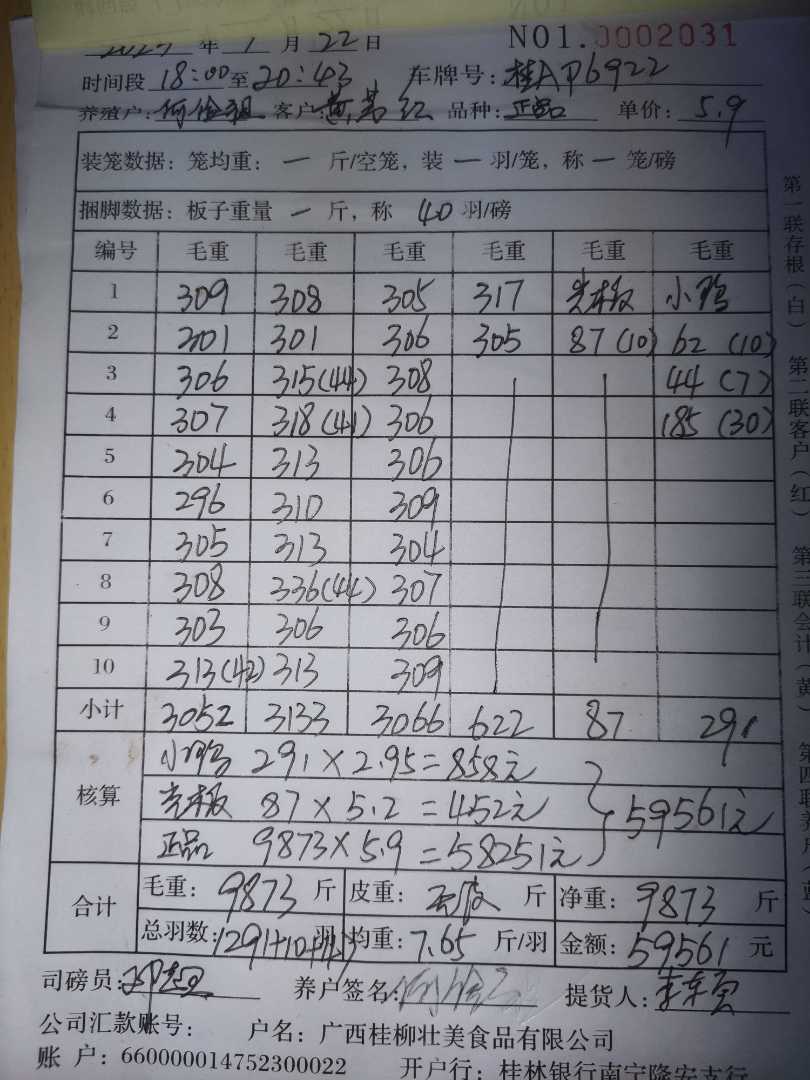 年 1 月 22 日 NO1.0002031
时间段 18:00 至 20:43 车牌号: 桂AP6922
养殖户: 何俭祖 客户: 品种: 正品 单价: 5.9
装笼数据: 笼均重: 一 斤/空笼, 装 一 羽/笼, 称 一 笼/磅
捆脚数据: 板子重量 一 斤, 称 40 羽/磅
编号 毛重 毛重 毛重 毛重 毛重 毛重
1 309 308 305 317 光板 小鸡
2 301 301 306 305 87(10) 62(10)
3 306 315(44) 308 44(7)
4 307 318(41) 306 185(30)
5 304 313 306
6 296 310 309
7 305 313 304
8 308 336(44) 307
9 303 306 306
10 313(42) 313 309
小计 3052 3133 3066 622 87 291
核算
小鸡 291×2.95=858元
光板 87×5.2=452元
正品 9873×5.9=58251元
59561元
合计
毛重: 9873 斤 皮重: 斤 净重: 9873 斤
总羽数: 1291+10+47 羽 均重: 7.65 斤/羽 金额: 59561 元
司磅员: 养户签名: 提货人:
公司汇款账号: 户名: 广西桂柳壮美食品有限公司
账 户: 660000014752300022 开户行: 桂林银行南宁隆安支行
第一联存根(白) 第二联客户(红) 第三联会计(黄) 第四联养户(蓝)